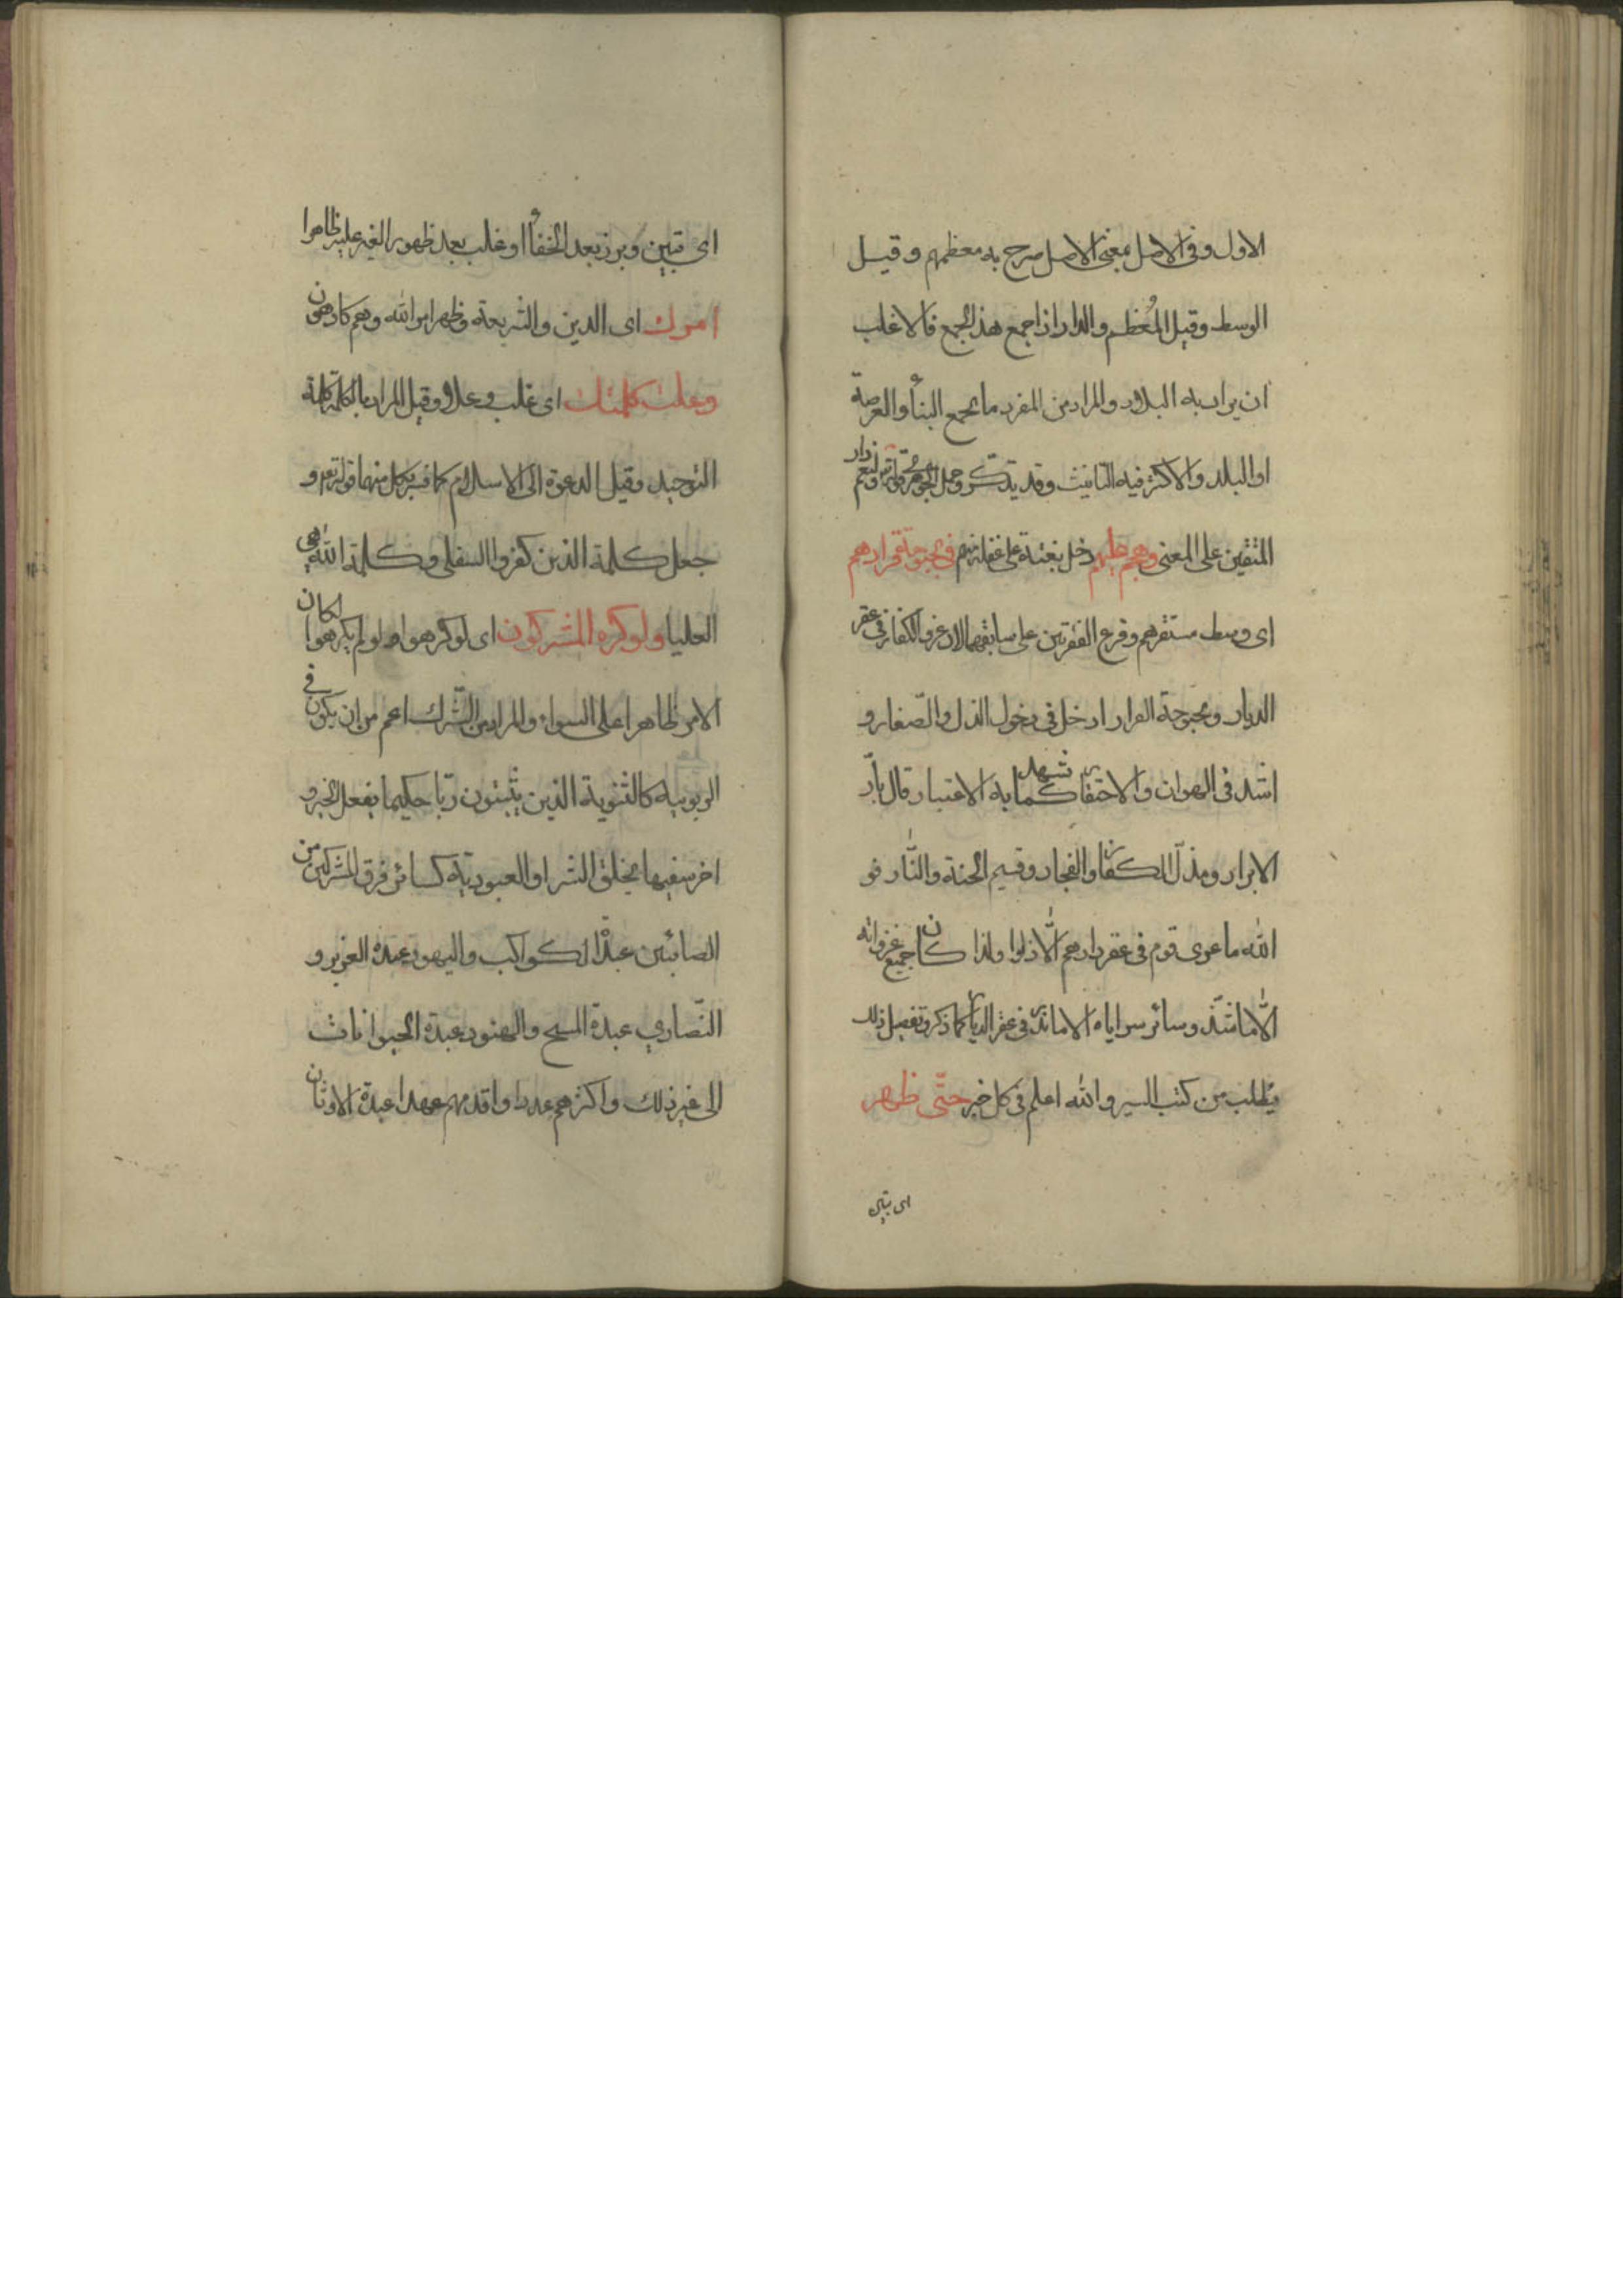 الاول وفى الاصل بمعنى الاصل صرح به معظمهم وقيل
الوسط وقيل المُعظم والدار اذا جمع هذا الجمع فالاغلب
ان يراد به البلاد والمراد من المفرد ما يجمع البنأ والعرصة
او البلد والاكثر فيه التانيث وقد يتذكر وحمل الجوهرى قوله تعم ولنعم دار
المتقين على المعنى وهجم عليهم دخل بغتة على غفلة منهم فى بحبوحة قرارهم
اى وسط مستقرهم وفرع الفقرتين على سابقهما لان غزو الكفار فى عقر
الديار وبحبوحة القرار ادخل فى دخول الذل والصّغار و
اشد فى الهوان والاحتقار كما يشهد به الاعتبار قال بارّ
الابرار ومذلّ الكفار والفجار وقسيم الجنة والنّار فو
الله ما غزى قوم فى عقر دارهم الّا ذلوا ولذا كان جميع غزواته
الّا ما شذّ وسائر سراياه الا ما ندر فى عقر الديار كما ذكر وتفصيل ذلك
يُطلب من كتب السير والله اعلم فى كل خبر حتّى ظهر
اى تبين
اى تبين وبرز بعد الخفأ او غلب بعد ظهور الغير عليه ظاهرا
امرك اى الدين والشريعة وظهر امر الله وهم كارهون
وعلت كلمتك اى غلب وعلا وقيل المراد بالكلمة كلمة
التوحيد وقيل الدعوة الى الاسلام كما فسر بكل منهما قوله تعم و
جعل كلمة الذين كفروا السفلى وكلمة الله هى
العليا ولو كره المشركون اى لو كرهوا ولو لم يكرهوا لكان
الامر ظاهرا على السواء والمراد من الشّرك اعم من ان يكون فى
الربوبية كالثنوية الذين يثبتون ربّا حكيما يفعل الخير و
اخر سفيها يخلق الشر او العبوديّة كسائر فرق المشركين من
الصابئين عبدة الكواكب واليهود عبدة العزير و
النّصارى عبدة المسيح والهنود عبدة الحيوانات
الى غير ذلك واكثرهم عددا واقدمهم عهدا عبدة الاوثان